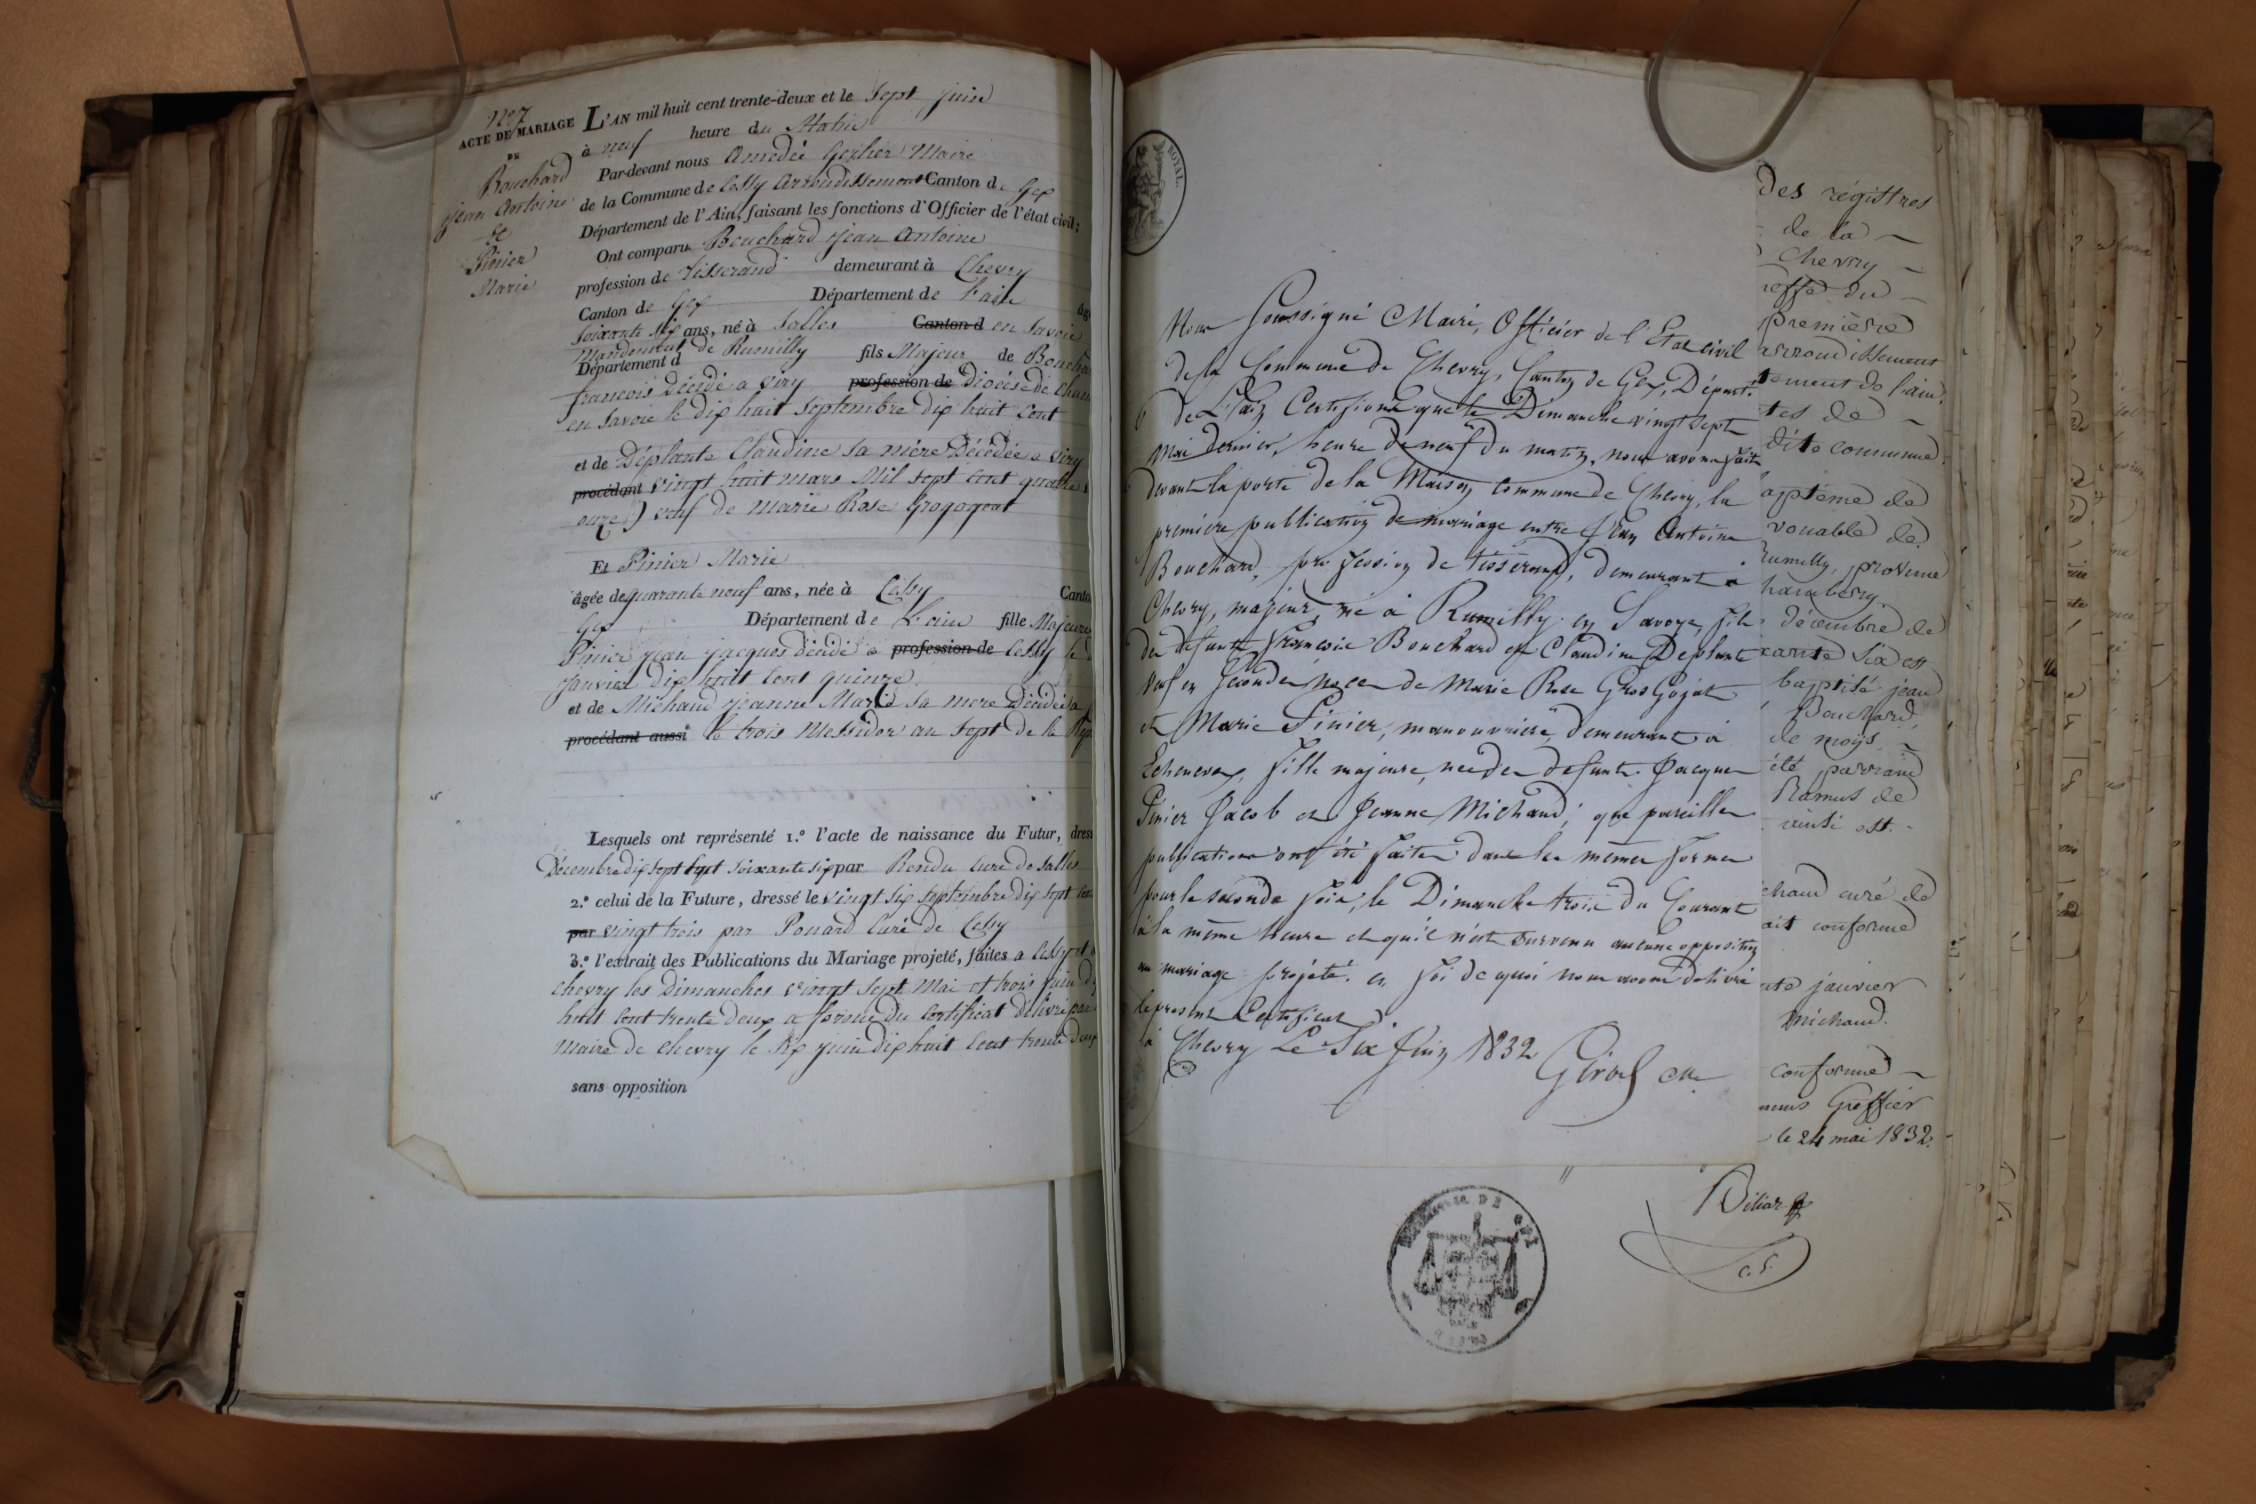 N.o 7
ACTE DE MARIAGE
DE
Bouchard
jean Antoine
et
Pinier
Marie
L'AN mil huit cent trente-deux et le Sept juin
à neuf heure du Matin
Par-devant nous Amedée Gerlier Maire
de la Commune de Cessy Arrondissement Canton de Gex
Département de l'Ain, faisant les fonctions d'Officier de l'état civil;
Ont comparu Bouchard jean Antoine
profession de Tisserand demeurant à Chevry
Canton de Gex Département de l'ain
soixante six ans, né à Salles Canton d en Savoie
Mandement de Rumilly
Département d fils Majeur de
francois Décédé a viry profession de Diocèse de
en Savoie le dix huit Septembre dix huit Cent
et de Déplante Claudine sa mère Décédée a viry
procédant vingt huit mars Mil sept cent
onze) veuf de Marie Rose Grogogeat
Et Pinier Marie
âgée de quarante neuf ans, née à Cessy
Gex Département de L'ain fille Majeure
Pinier jean jacques décidé a profession de Cessy le
janvier dix huit Cent quinze
et de Michaud jeanne Marie sa mere Décidée a
procédant aussi le trois Messidor an sept de la
Lesquels ont représenté 1.º l'acte de naissance du Futur,
Décembre dix sept cent soixante six par Rendu Curé de Salles
2.º celui de la Future, dressé le vingt six septembre dix sept
par vingt trois par Ponard Curé de Cessy
3.º l'extrait des Publications du Mariage projeté, faites a Cessy et
Chevry les Dimanches vingt sept Mai et trois juin
huit Cent trente Deux a forme du Certificat délivré par
Maire de Chevry le six juin dix huit Cent trente Deux
sans opposition
ROYAL.
Nous Soussigné Maire, Officier de l'Etat civil
de la Commune de Chevry, Canton de Gex, Départ.t
de L'ain Certifions que le Dimanche vingt sept
Mai dernier, heure de neuf du matin, nous avons fait
devant la porte de la Maison commune de Chevry, la
premiere publication de mariage entre Jean Antoine
Bouchard, profession de tisserand, demeurant à
Chevry, majeur, né à Rumilly en Savoye, fils
des defunts François Bouchard et Claudine Deplante
veuf en secondes noces de Marie Rose GrosGojat
et Marie Pinier, manouvriere, demeurant à
Echenevex, fille majeure, née des defunts Jacques
Pinier Jacob et Jeanne Michaud; que pareilles
publications ont été faites dans les mêmes formes
pour la seconde fois, le Dimanche trois du Courant
à la même heure et qu'il n'est survenu aucune opposition
au mariage projeté. en foi de quoi nous avons délivré
le present Certificat
à Chevry Le Six Juin 1832
Girod
des régistres
de la
Chevry
greffe du
première
arrondissement
tement de l'ain.
tes de
dite commune.
aptême de
vouable de
Rumilly, province
hambery
décembre de
xante six est
baptisé jean
Bouchard,
de moÿs.
été parrain
Ramus de
ainsi est.
chaud curé de
ait conforme
nte janvier
Michaud.
conforme
Greffier
le 24 mai 1832.